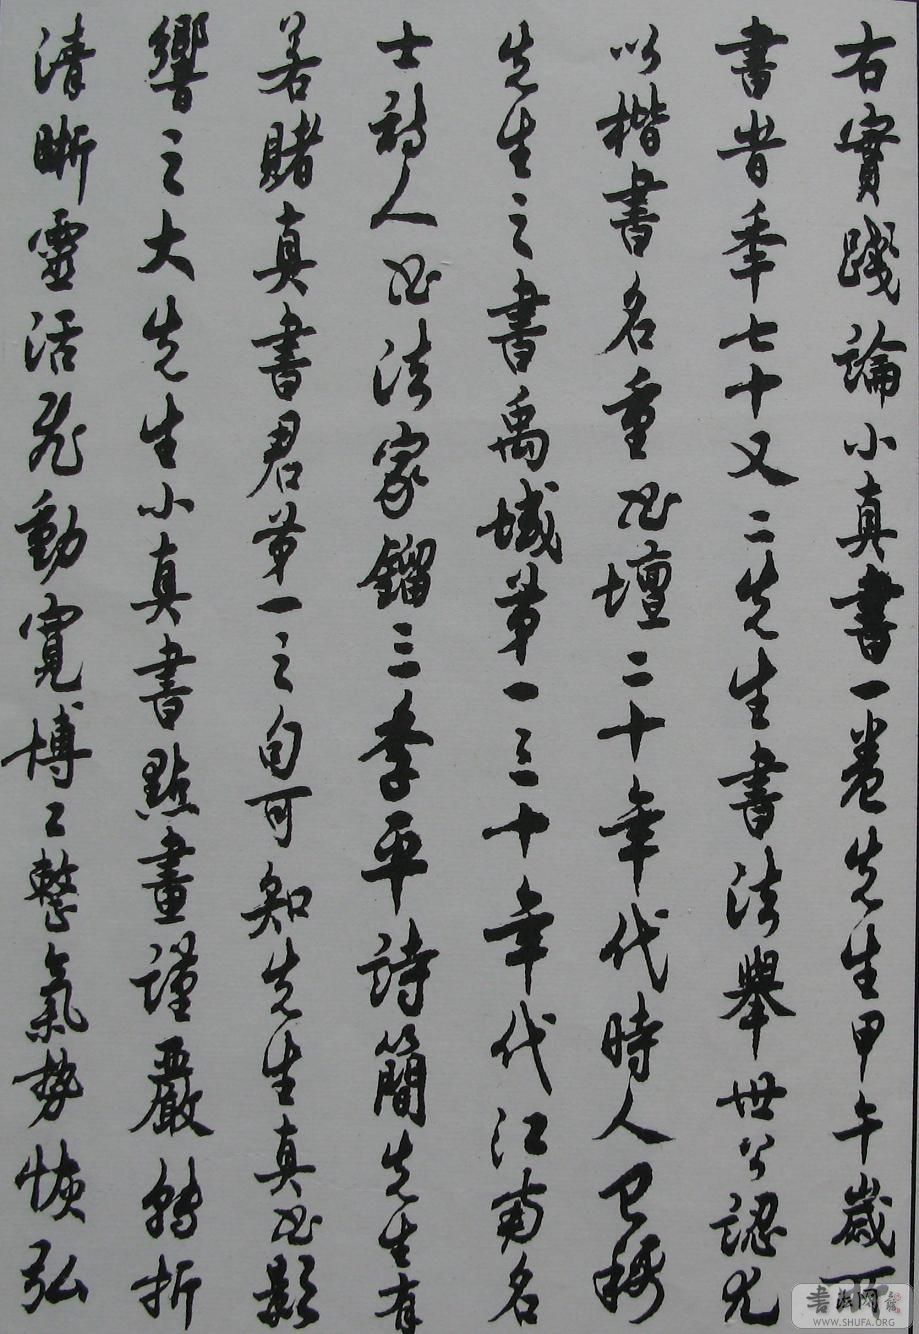 右實踐論小真書一卷先生甲午歲所
書昔年七十又二先生書法舉世公認尤
以楷書名重书壇二十年代時人已稱
先生之書禹域第一三十年代江南名
士詩人书法家鎦三季平詩簡先生有
若賭真書君第一之句可知先生真书影
響之大先生小真書點畫謹嚴轉折
清晰靈活飛動寬博工整氣勢恢弘
書法网
WWW.SHUFA.ORG